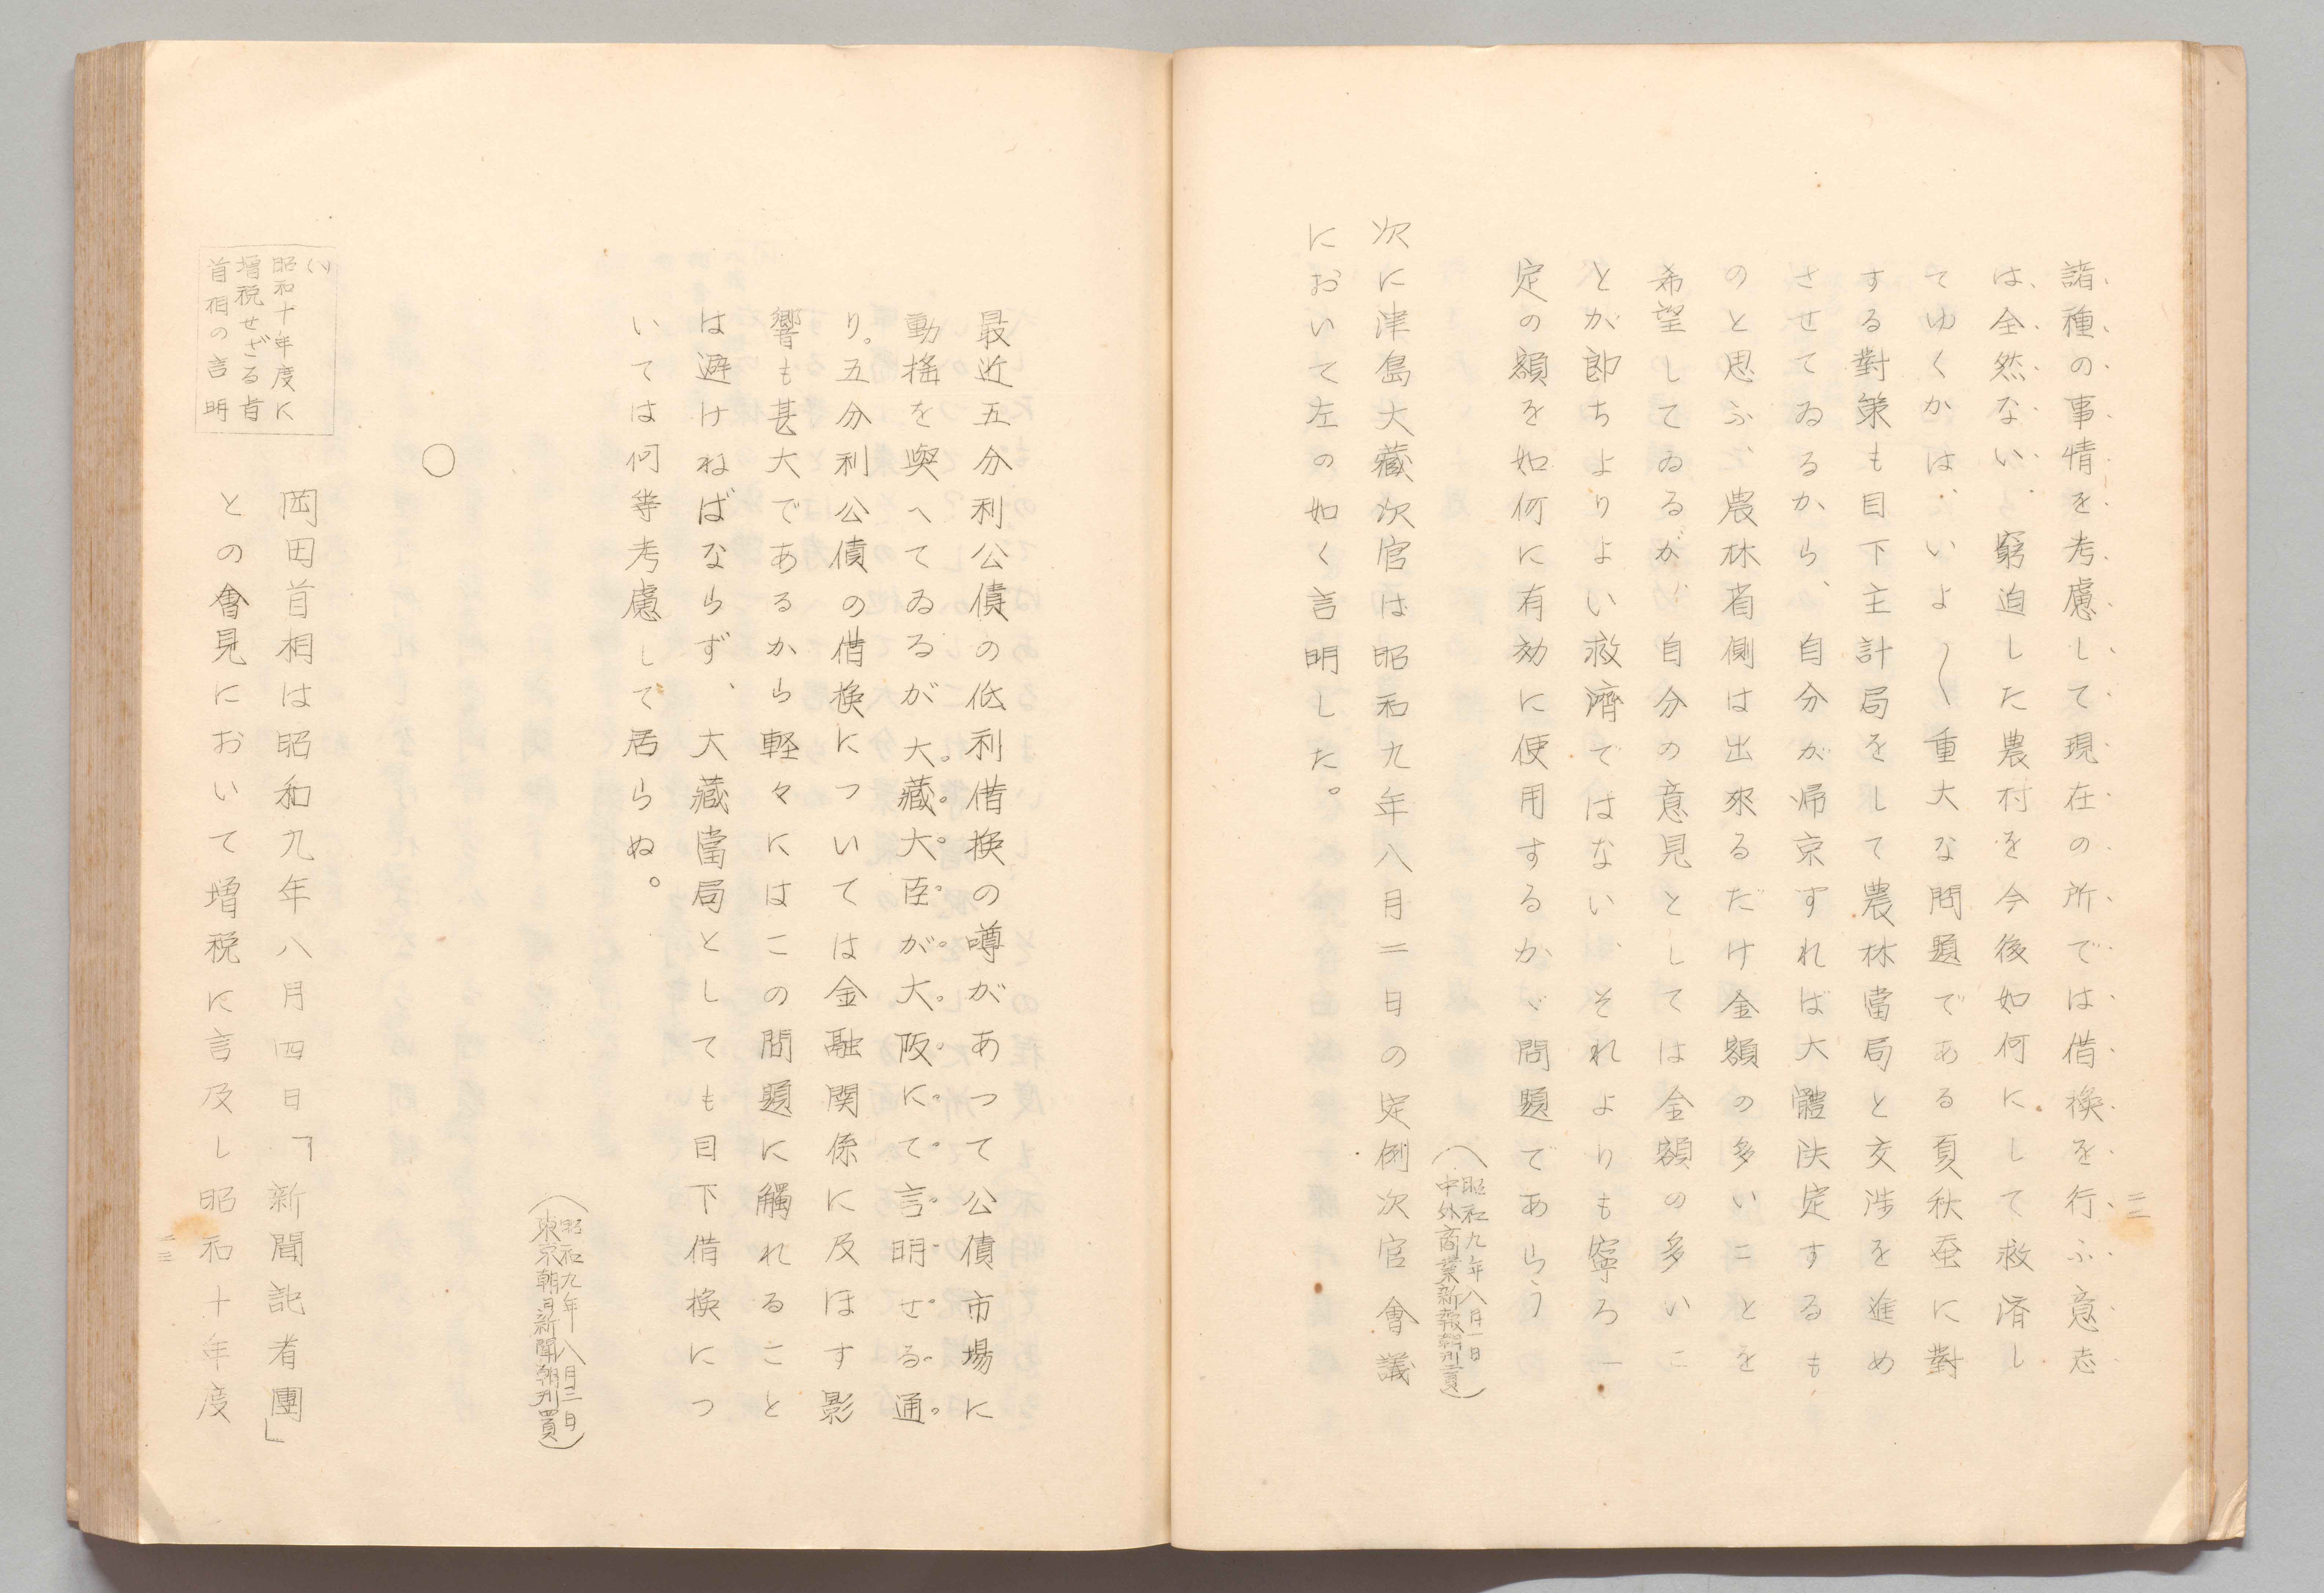 諸種の事情を考慮して現在の所では借換を行ふ意志
は全然ない、窮迫した農村を今後如何にして救済し
てゆくかは、いよ〳〵重大な問題である夏秋蚕に對
する對策も目下主計局をして農林當局と交渉を進め
させてゐるから、自分が帰京すれば大體決定するも
のと思ふ、農林省側は出來るだけ金額の多いことを
希望してゐるが、自分の意見としては金額の多いこ
とが即ちよりよい救濟ではない、それよりも寧ろ一
定の額を如何に有効に使用するかゞ問題であらう
(昭和九年八月一日
中外商業新報朝刊二頁)
次に津島大藏次官は昭和九年八月二日の定例次官會議
において左の如く言明した。
二二
最近五分利公債の低利借換の噂があつて公債市場に
動揺を與へてゐるが大藏大臣が大阪にて言明せる通
り。五分利公債の借換については金融関係に及ほす影
響も甚大であるから軽々にはこの問題に觸れること
は避けねばならず、大藏當局としても目下借換につ
いては何等考慮して居らぬ。
(昭和九年八月三日
東京朝日新聞朝刊四頁)
○
(ハ)
昭和十年度に
増税せざる旨
首相の言明
岡田首相は昭和九年八月四日「新聞記者團」
との會見において増税に言及し昭和十年度
二三